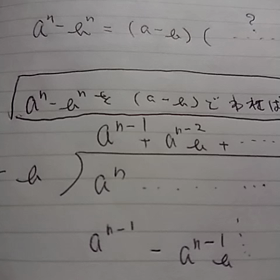 aⁿ-bⁿ = (a-b) ( ? ....
aⁿ-bⁿ を (a-b) でわれば
aⁿ⁻¹ + aⁿ⁻²b + ....
- b ) aⁿ .... ....
aⁿ⁻¹ - aⁿ⁻¹b